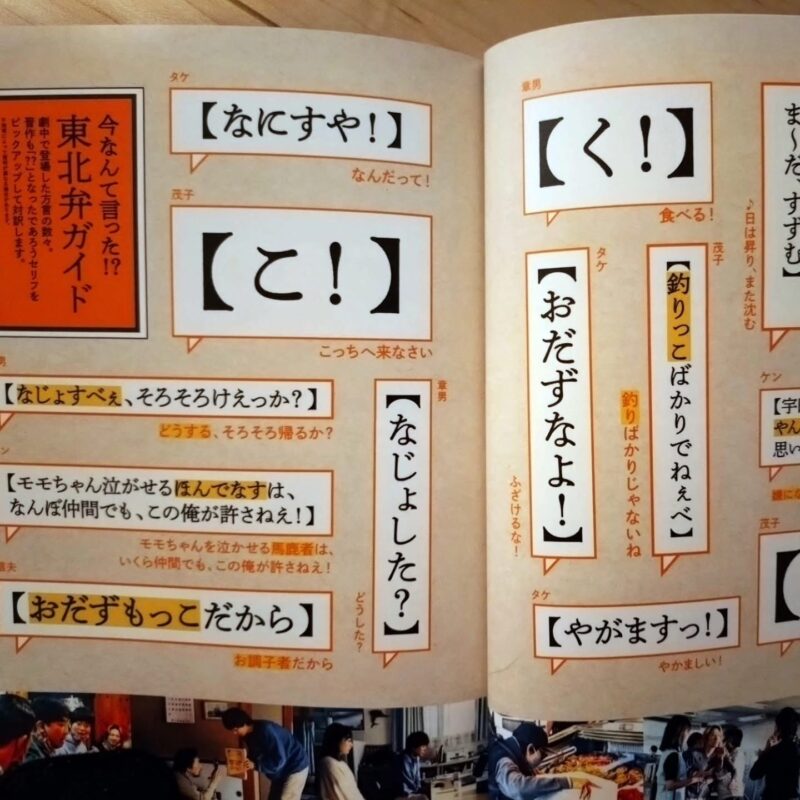 今なんて言った!?
東北弁ガイド
劇中で登場した方言の数々。
晋作も「??」となったであろうセリフを
ピックアップして対訳します。
タケ
【なにすや!】
なんだって!
茂子
【こ!】
こっちへ来なさい
男
【なじょすべぇ、そろそろけえっか?】
どうする、そろそろ帰るか?
ン
【モモちゃん泣がせるほんでなすは、
なんぼ仲間でも、この俺が許さねえ!】
モモちゃんを泣かせる馬鹿者は、
いくら仲間でも、この俺が許さねえ!
【おだずもっこだから】
お調子者だから
章男
【なじょした?】
どうした?
章男
【く!】
食べる!
タケ
【おだずなよ!】
ふざけるな!
茂子
【釣りっこばかりでねぇべ】
釣りばかりじゃないね
タケ
【やがますっ!】
やかましい!
ま〜だ、すずむ】
♪日は昇り、また沈む
ケン
【宇
やん
思い
茂子
【